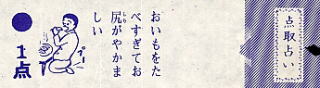 点取占い
おいもをた
べすぎてお
尻がやかま
しい
しり
プー
1点